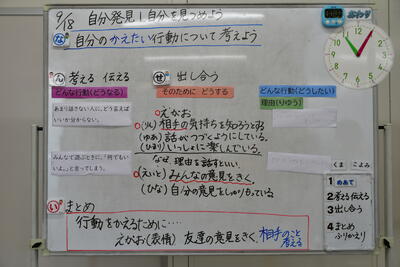 9/18 自分発見!自分を見つめよう
な 自分のかえたい行動について考えよう
ん 考える 伝える
せ 出し合う
どんな行動(どうなる)
そのために どうする
どんな行動(どうしたい)
理由(りゆう)
あまり話さない人に、どう言えば
いいか分からない。
えがお
相手の気持ちを知ろうとする
(ゆあ) 話がつづくようにしている。
(ひまり) いっしょに楽しんでいる。
なぜ、理由を話すといい。
みんなで遊ぶときに、「何でもい
いよ。」と言ってしまう。
(えいと) みんなの意見をきく。
(ひな) 自分の意見をしっかりもっている
い まとめ
行動をかえるために‥‥
えがお(表情) 友達の意見をきく、相手のこと
考える
1 めあて
2 考える 伝える
3 出し合う
4 まとめ
ふりかえり